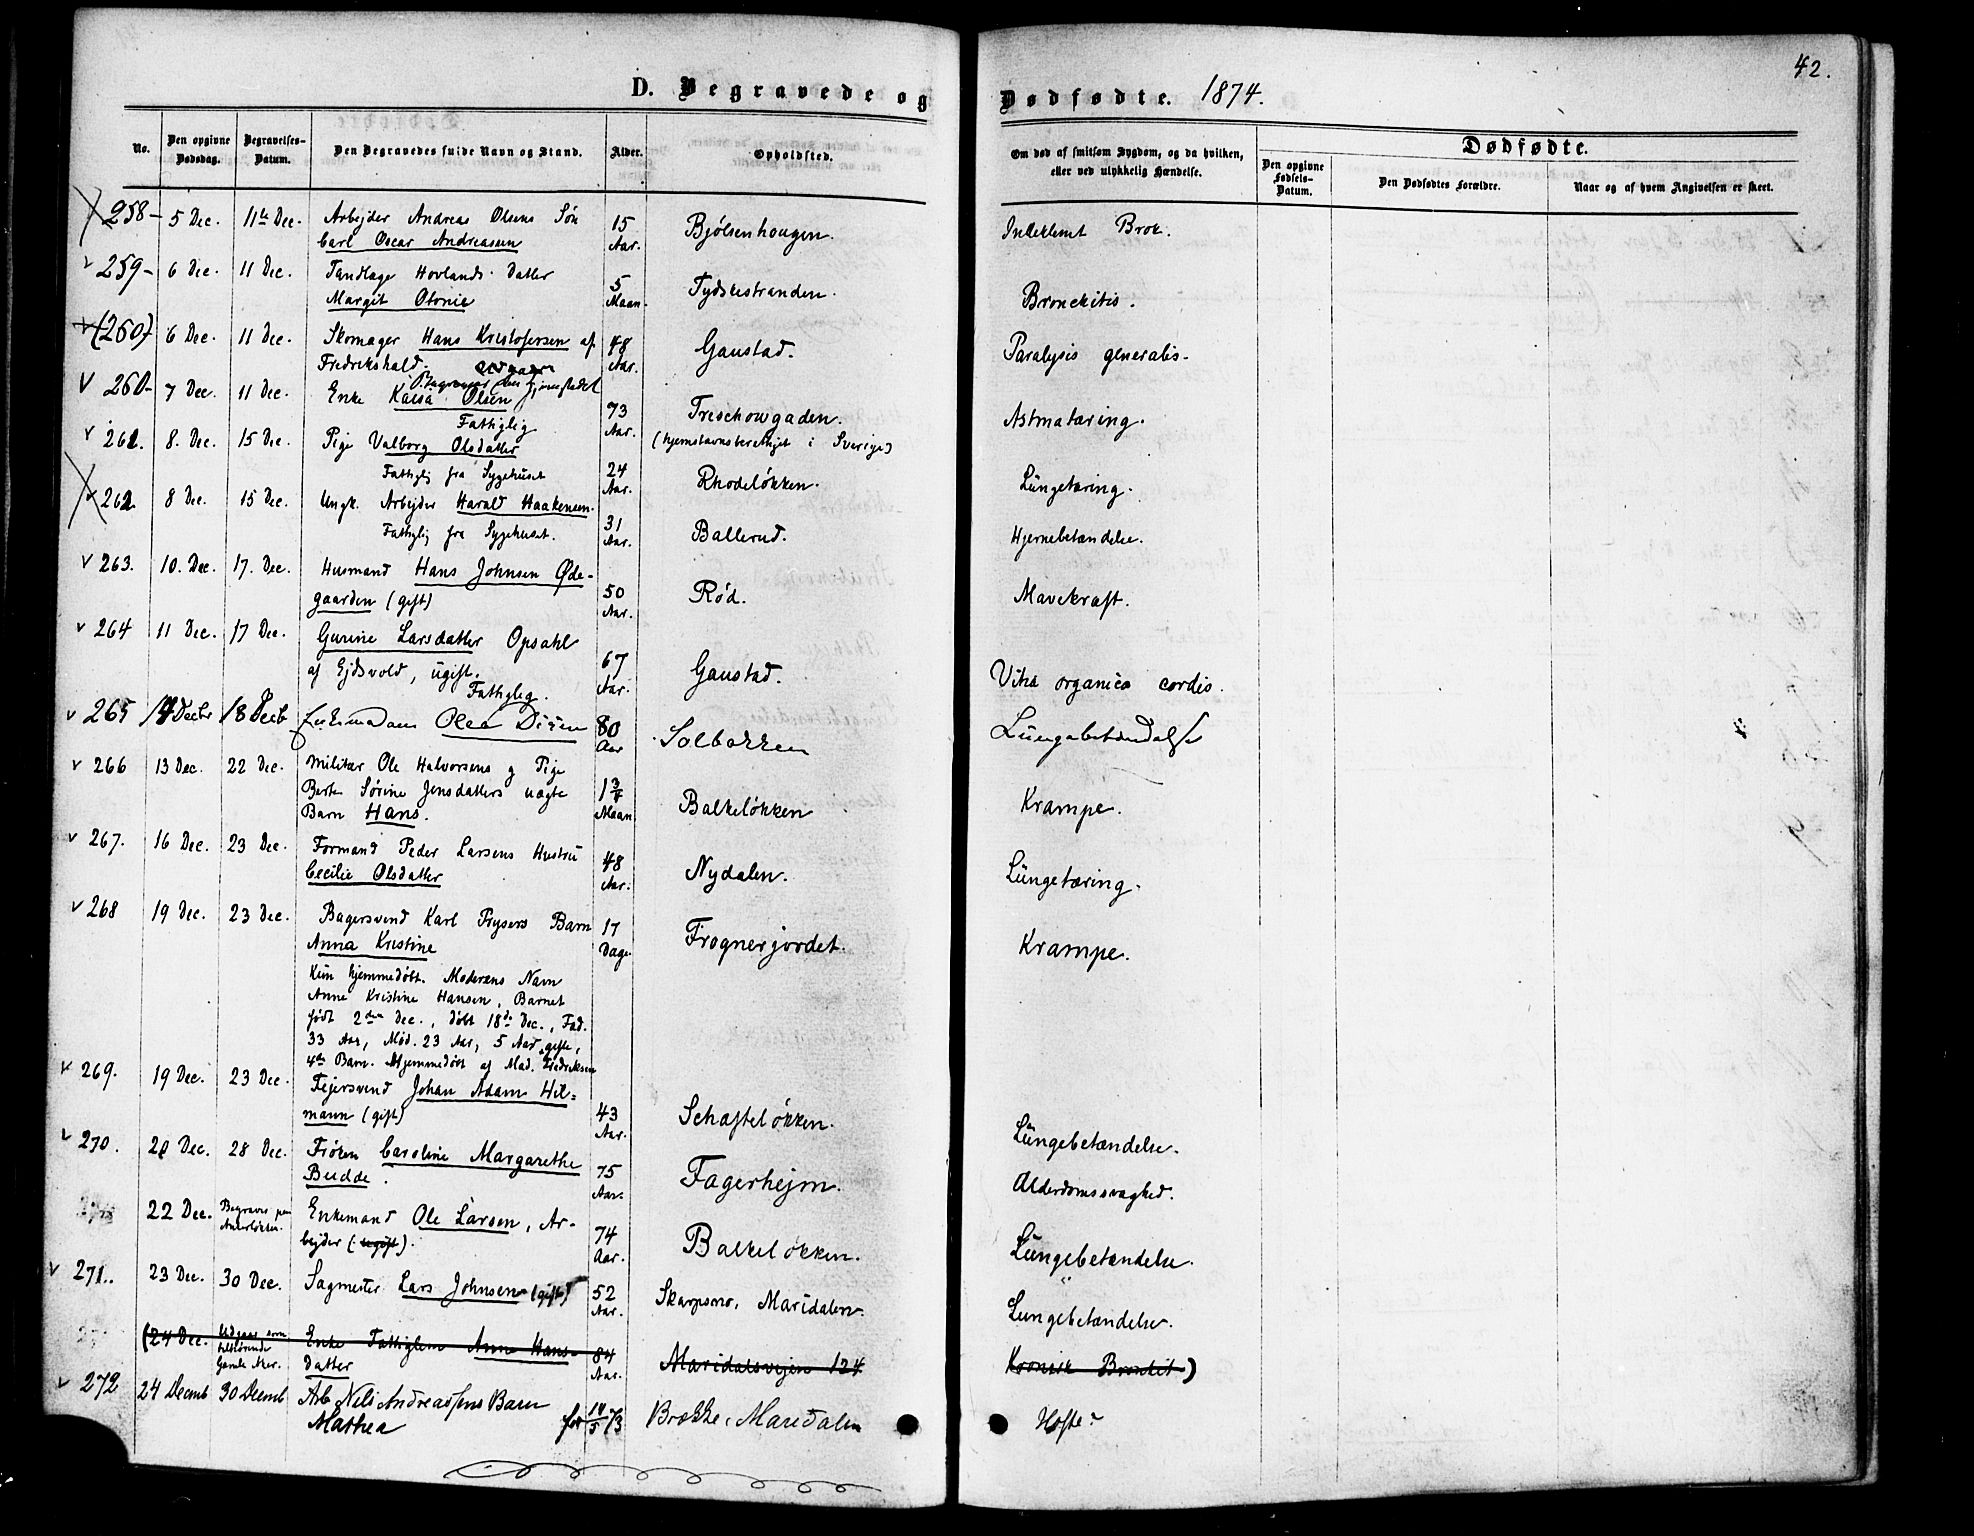 42.
D. Begravede og Dødfødte. 1874.
No.
Den opgivne Dødsdag.
Begravelses-Datum.
Den Begravedes fulde Navn og Stand.
Alder.
Opholdsted.
Om død af smitsom Sygdom, og da hvilken, eller ved ulykkelig Hændelse.
Dødfødte.
Den opgivne Fødsels-Datum.
Den Dødfødtes Forældre.
Naar og af hvem Angivelsen er skeet.
258 - 5 Dec. 11te Dec. Arbejder Andreas Olsens Søn 15 Aar. Bjølsenhougen. Inklemt Brok.
Carl Oscar Andreasen
259 - 6 Dec. 11 Dec. Tandlæge Hovlands Datter 5 Maan. Tydskestranden. Bronchitis.
Margit Otonie
(260) 6 Dec. 11 Dec. Skomager Hans Kristofersen af 48 Aar. Gaustad. Paralysis generalis.
Fredrikshald. udgaar
Begravet paa hjemstedet
260 - 7 Dec. 11 Dec. Enke Kaisa Olsen 73 Aar. Treschowgaden. Astmatæring.
Fattiglig (hjemstavnsberettiget i Sverige)
261. 8. Dec. 15 Dec. Pige Valborg Olsdatter 24 Aar. Rhodeløkken. Lungetæring.
Fattiglig fra Sygehuset
262 8 Dec. 15 Dec. Ungk. Arbejder Harald Haakensen. 31 Aar. Ballerud. Hjernebetændelse.
Fattiglig fra Sygehuset.
263. 10. Dec. 17. Dec. Husmand Hans Johnsen Øde- 50 Aar. Rød. Mavekræft.
gaarden (gift)
264 11 Dec. 17 Dec. Gurine Larsdatter Opsahl 67 Aar. Gaustad. Vitia organica cordis.
af Ejdsvold, ugift.
Fattiglig.
265 14 Decbr 18 Decb Olea 80 Aar Solbakken Lungebetændelse
266 13 Dec. 22 Dec. Militær Ole Halvorsens og Pige 1 3/4 Maan Balkeløkken Krampe.
Berte Sørine Jensdatters uægte
Barn Hans.
267. 16 Dec. 23 Dec. Formand Peder Larsens Hustru 48 Aar. Nydalen. Lungetæring.
Cecilie Olsdatter
268 19 Dec. 23 Dec. Bagersvend Karl Prysers Barn 17 Dage Frognerjordet. Krampe.
Anna Kristine
Kun hjemmedøbt. Moderens Navn
Anne Kristine Hansen, Barnet
født 2den Dec., døbt 18de Dec., Fad.
33 Aar, Mod. 23 Aar, 5 Aar gifte,
4de Barn. Hjemmedøbt af Mad. Fredriksen
269. 19 Dec. 23 Dec. Fejersvend Johan Adam Hil=
mann (gift) 43 Aar. Schafteløkken. Lungebetændelse.
270. 20 Dec. 28 Dec. Frøken Caroline Margarethe 75 Aar. Fagerhejm. Alderdomssvaghed.
Budde.
22 Dec. Begraves paa Enkemand Ole Larsen, Ar- 74 Aar. Balkeløkken. Lungebetændelse.
bejder (ugift).
271. 23 Dec. 30 Dec. Sagmester Lars Johnsen (gift) 52 Aar. Skarpsno, Maridalen. Lungebetændelse.
(24 Dec. Udgaar som tilhørende Gamle Aker. Enke Fattiglem Anne Hans- 84 Aar. Maridalsvejen 124 Kronisk Bronkit)
datter
272 24 Decemb 30 Decemb Arb. Nils Andreassens Barn
Mathea før 10/5 73 Brække, Maridalen Hoste